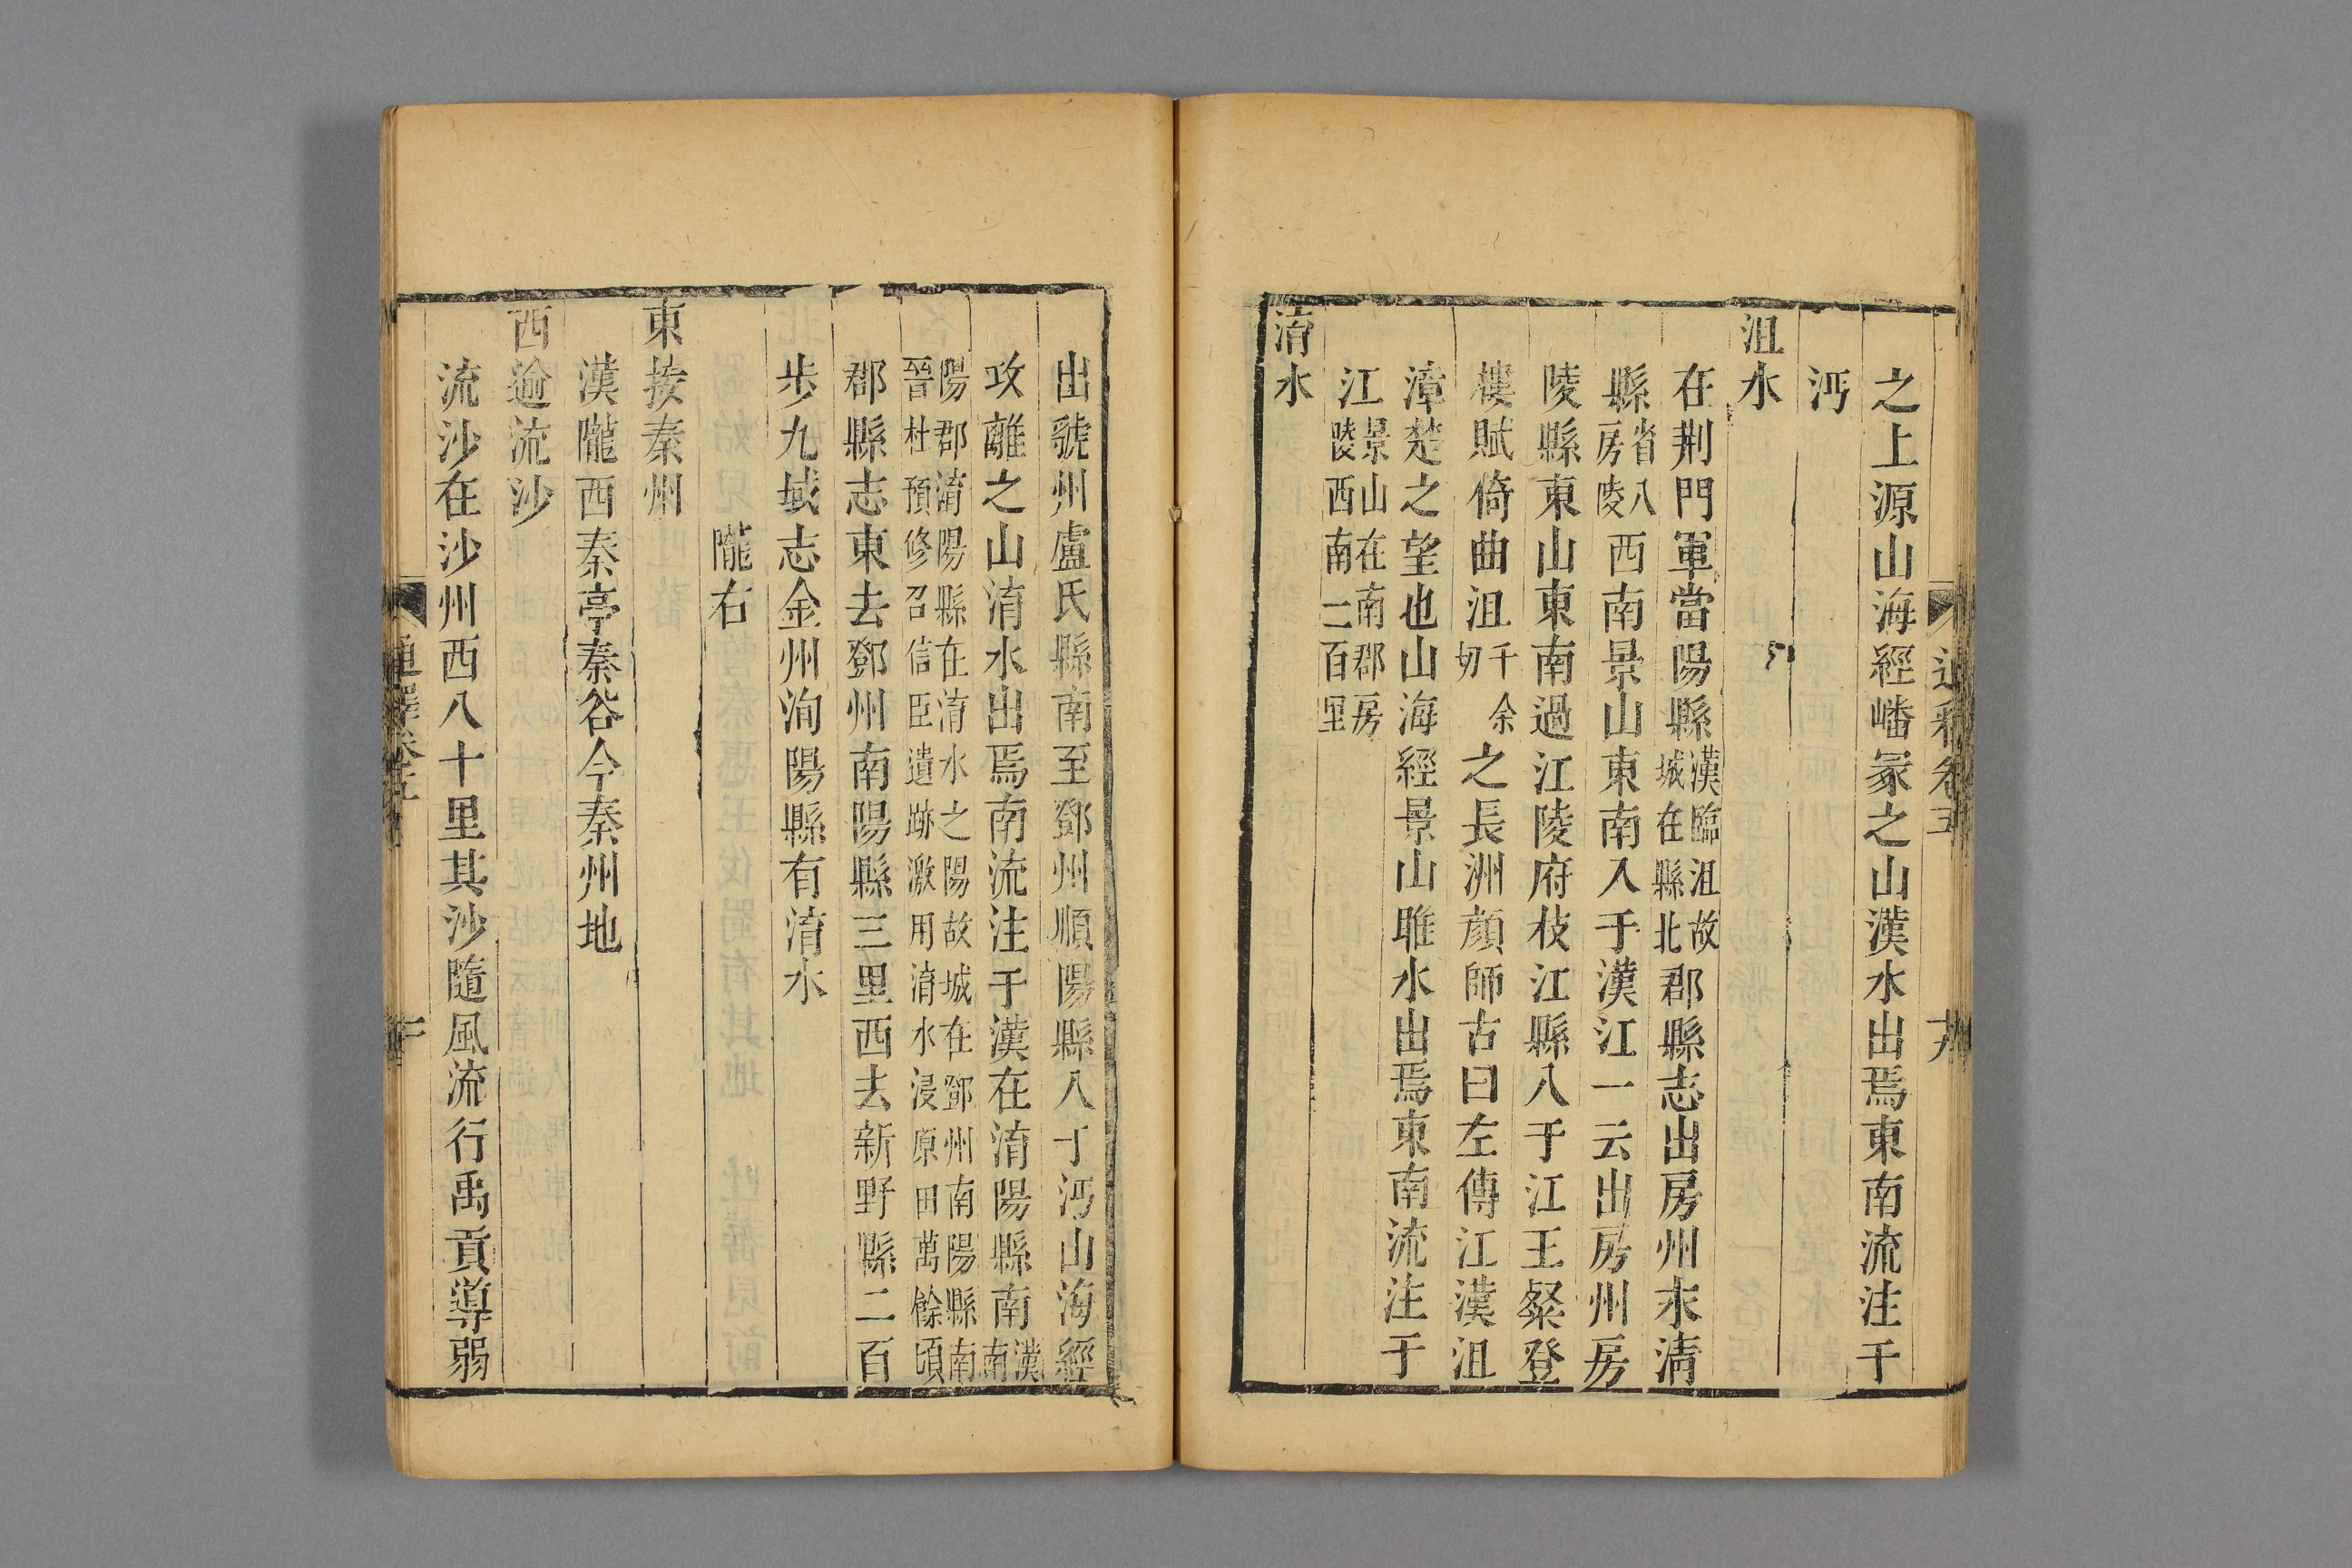 通釋卷五 十九
之上源山海經嶓冢之山漢水出焉東南流注于
沔
沮水
在荆門軍當陽縣漢臨沮故城在縣北郡縣志出房州末清
縣省八房陵西南景山東南入于漢江一云出房州房
陵縣東山東南過江陵府枝江縣八于江王粲登
樓賦倚曲沮千余切之長洲顔師古曰左傳江漢沮
漳楚之望也山海經景山雎水出焉東南流注于
江景山在南郡房陵西南二百里
淯水
出虢州盧氏縣南至鄧州順陽縣八于沔山海經
攻離之山淯水出焉南流注于漢在淯陽縣南漢南
陽郡淯陽縣在淯水之陽故城在鄧州南陽縣南晉杜預修召信臣遺跡激用淯水浸原田萬餘頃
郡縣志東去鄧州南陽縣三里西去新野縣二百
步九域志金州洵陽縣有淯水
隴右
東接秦州
漢隴西秦亭秦谷今秦州地
西逾流沙
流沙在沙州西八十里其沙隨風流行禹貢導弱
通釋卷五